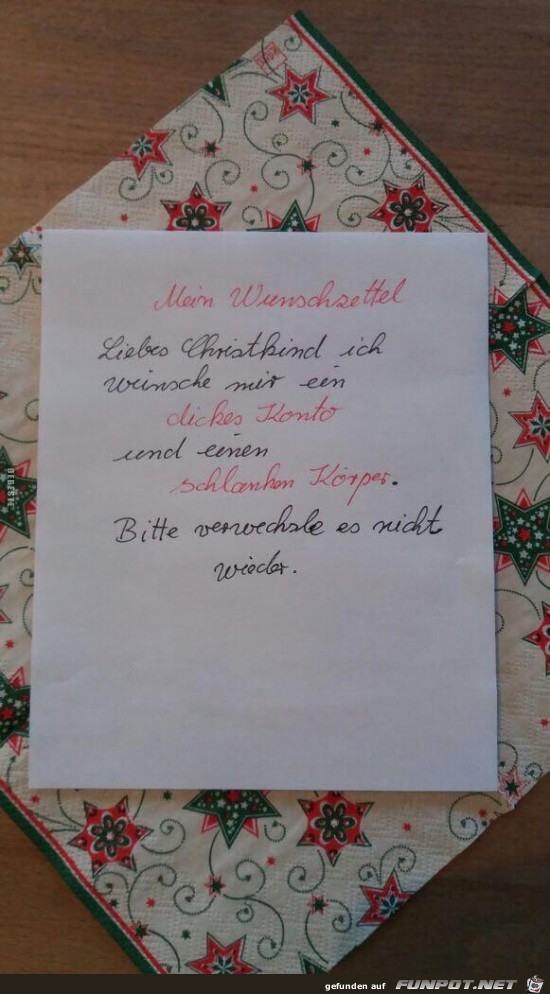 Mein Wunschzettel
Liebes Christkind ich
wünsche mir ein
dickes Konto
und einen
schlanken Körper.
Bitte verwechsle es nicht
wieder.
DEBESTE
gefunden auf FUNPOT.NET